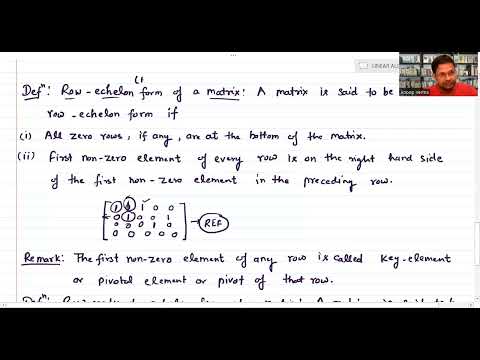 LINEAR AL
Anoop Verma
Defⁿ: Row-echelon form of a matrix: A matrix is said to be
row-echelon form if
(i) All zero rows, if any, are at the bottom of the matrix.
(ii) First non-zero element of every row is on the right hand side
of the first non-zero element in the preceding row.
1 0 1 0 0
0 1 0 0 1 → REF
0 0 0 1 0
0 0 0 0 0
Remark: The first non-zero element of any row is called key-element
or pivotal element or pivot of that row.